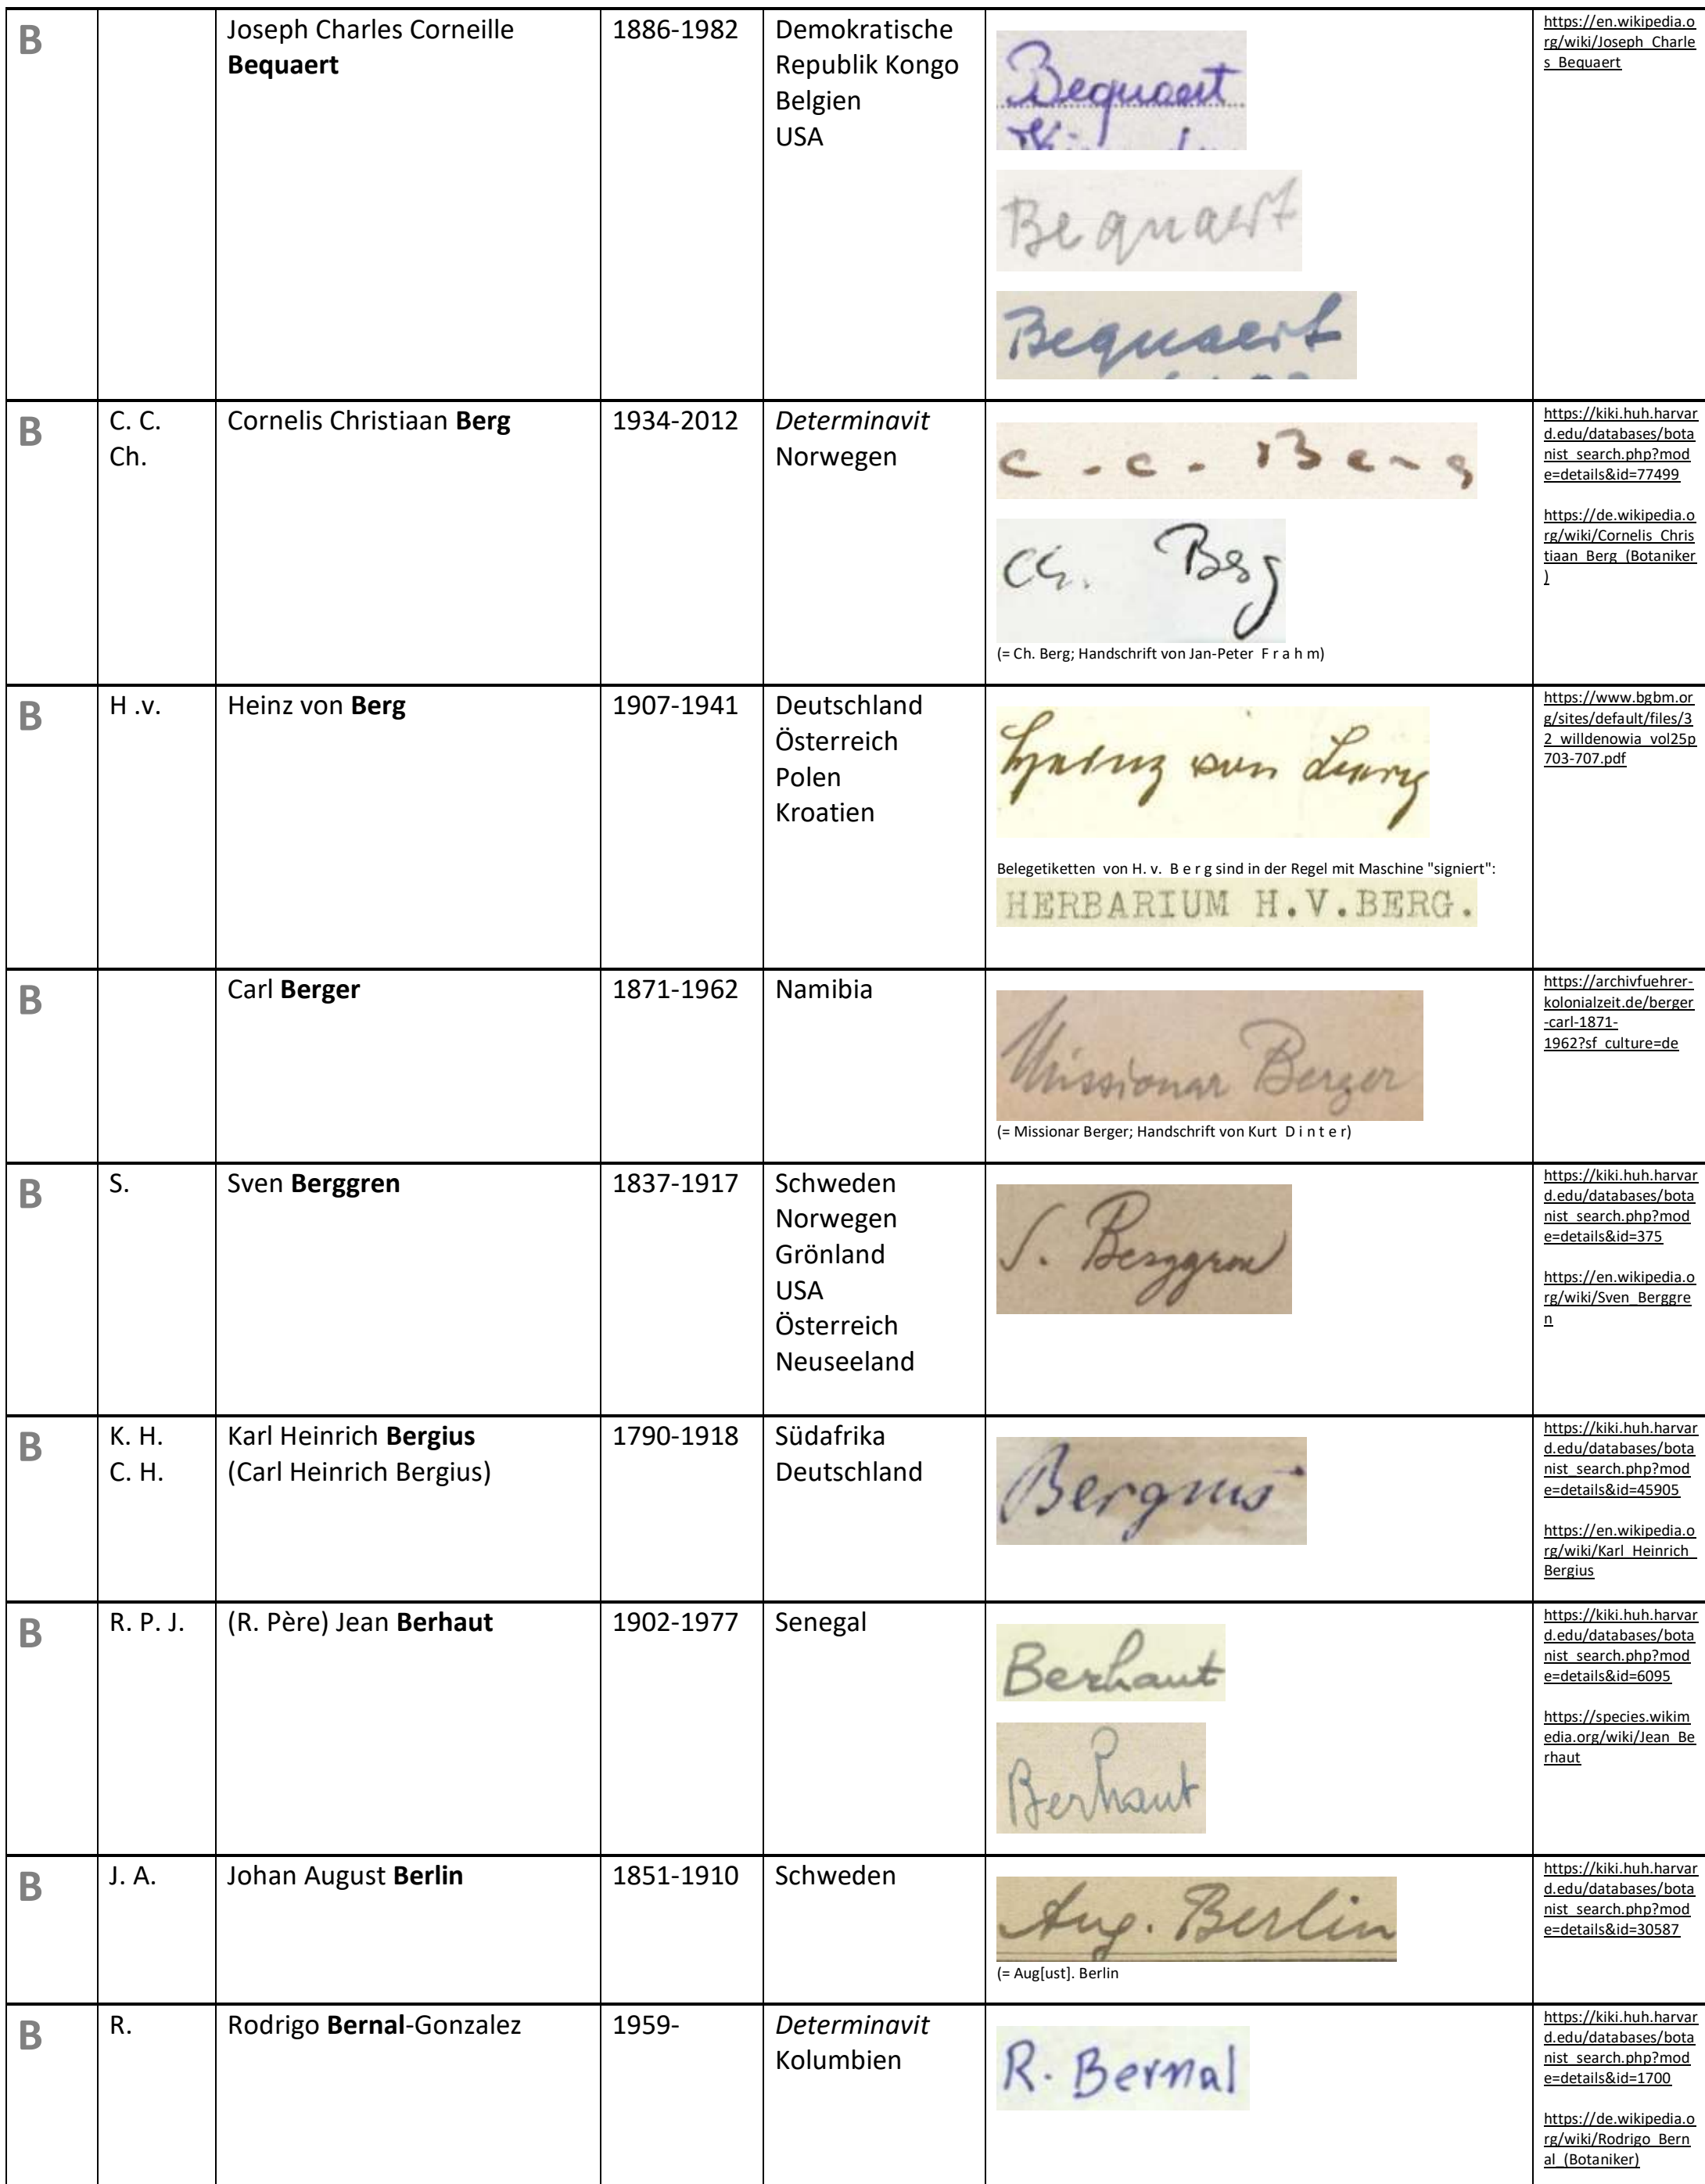 B
Joseph Charles Corneille
Bequaert
1886-1982
Demokratische
Republik Kongo
Belgien
USA
Bequaert
Bequaert
Bequaert
https://en.wikipedia.o
rg/wiki/Joseph_Charle
s_Bequaert
B
C. C.
Ch.
Cornelis Christiaan Berg
1934-2012
Determinavit
Norwegen
C. C. Berg
Ch. Berg
(= Ch. Berg; Handschrift von Jan-Peter F r a h m)
https://kiki.huh.harvar
d.edu/databases/bota
nist_search.php?mod
e=details&id=77499
https://de.wikipedia.o
rg/wiki/Cornelis_Chris
tiaan_Berg_(Botaniker
)
B
H .v.
Heinz von Berg
1907-1941
Deutschland
Österreich
Polen
Kroatien
Heinz von Berg
Belegetiketten von H. v. B e r g sind in der Regel mit Maschine "signiert":
HERBARIUM H.V.BERG.
https://www.bgbm.or
g/sites/default/files/3
2_willdenowia_vol25p
703-707.pdf
B
Carl Berger
1871-1962
Namibia
Missionar Berger
(= Missionar Berger; Handschrift von Kurt D i n t e r)
https://archivfuehrer-
kolonialzeit.de/berger
-carl-1871-
1962?sf_culture=de
B
S.
Sven Berggren
1837-1917
Schweden
Norwegen
Grönland
USA
Österreich
Neuseeland
S. Berggren
https://kiki.huh.harvar
d.edu/databases/bota
nist_search.php?mod
e=details&id=375
https://en.wikipedia.o
rg/wiki/Sven_Berggre
n
B
K. H.
C. H.
Karl Heinrich Bergius
(Carl Heinrich Bergius)
1790-1918
Südafrika
Deutschland
Bergius
https://kiki.huh.harvar
d.edu/databases/bota
nist_search.php?mod
e=details&id=45905
https://en.wikipedia.o
rg/wiki/Karl_Heinrich_
Bergius
B
R. P. J.
(R. Père) Jean Berhaut
1902-1977
Senegal
Berhaut
Berhaut
https://kiki.huh.harvar
d.edu/databases/bota
nist_search.php?mod
e=details&id=6095
https://species.wikim
edia.org/wiki/Jean_Be
rhaut
B
J. A.
Johan August Berlin
1851-1910
Schweden
Aug. Berlin
(= Aug[ust]. Berlin
https://kiki.huh.harvar
d.edu/databases/bota
nist_search.php?mod
e=details&id=30587
B
R.
Rodrigo Bernal-Gonzalez
1959-
Determinavit
Kolumbien
R. Bernal
https://kiki.huh.harvar
d.edu/databases/bota
nist_search.php?mod
e=details&id=1700
https://de.wikipedia.o
rg/wiki/Rodrigo_Bern
al_(Botaniker)